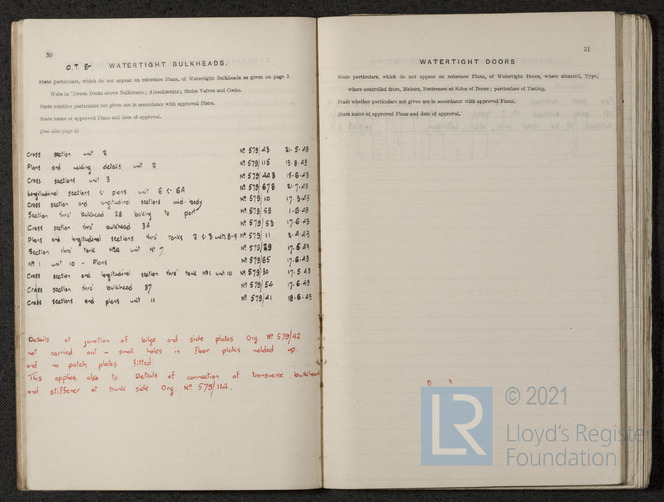 30
O.T. & WATERTIGHT BULKHEADS.
State particulars, which do not appear on reference Plans, of Watertight Bulkheads as given on page 5
Webs in 'Tween Decks above Bulkheads; Attachments; Sluice Valves and Cocks.
State whether particulars not given are in accordance with approved Plans.
State name of approved Plans and date of approval.
(See also page 4)
Cross section unit 2 Nº 579/43 21.5.43
Plans and welding details unit 2 Nº 579/115 13.8.43
Cross sections unit 3 Nº 579/44B 15.6.43
Longitudinal sections & plans unit 6 & 6A Nº 579/67B 21.7.43
Cross section and longitudinal sections mid. body Nº 579/10 17.3.43
Section thro' bulkhead 28 looking to port Nº 579/58 1.6.43
Cross section thro' bulkhead 34 Nº 579/53 17.6.43
Plans and longitudinal sections thro' tanks 2 & 3 units 8-9 Nº 579/11 2.4.43
Section thro' tank Nº4 unit Nº 7 Nº 579/29 17.6.43
Nº 1 unit 10 - Plans Nº 579/65 17.6.43
Cross section and longitudinal section thro' tank Nº1 unit 10 Nº 579/30 17.5.43
Cross section thro' bulkhead 37 Nº 579/54 17.6.43
Cross sections and plans unit 11 Nº 579/41 18.6.43
Details at junction of bilge and side plates Drg. Nº 579/42
not carried out - small holes in floor plates welded up.
and no patch plates fitted.
This applies also to Details of connection of transverse bulkhead
and stiffener at trunk side Drg. Nº 579/114.
31
WATERTIGHT DOORS
State particulars, which do not appear on reference Plans, of Watertight Doors, where situated, Type,
where controlled from, Makers, Buttresses at Sides of Doors; particulars of Testing.
State whether particulars not given are in accordance with approved Plans.
State name of approved Plans and date of approval.
© 2021
LR
Lloyd's Register
Foundation